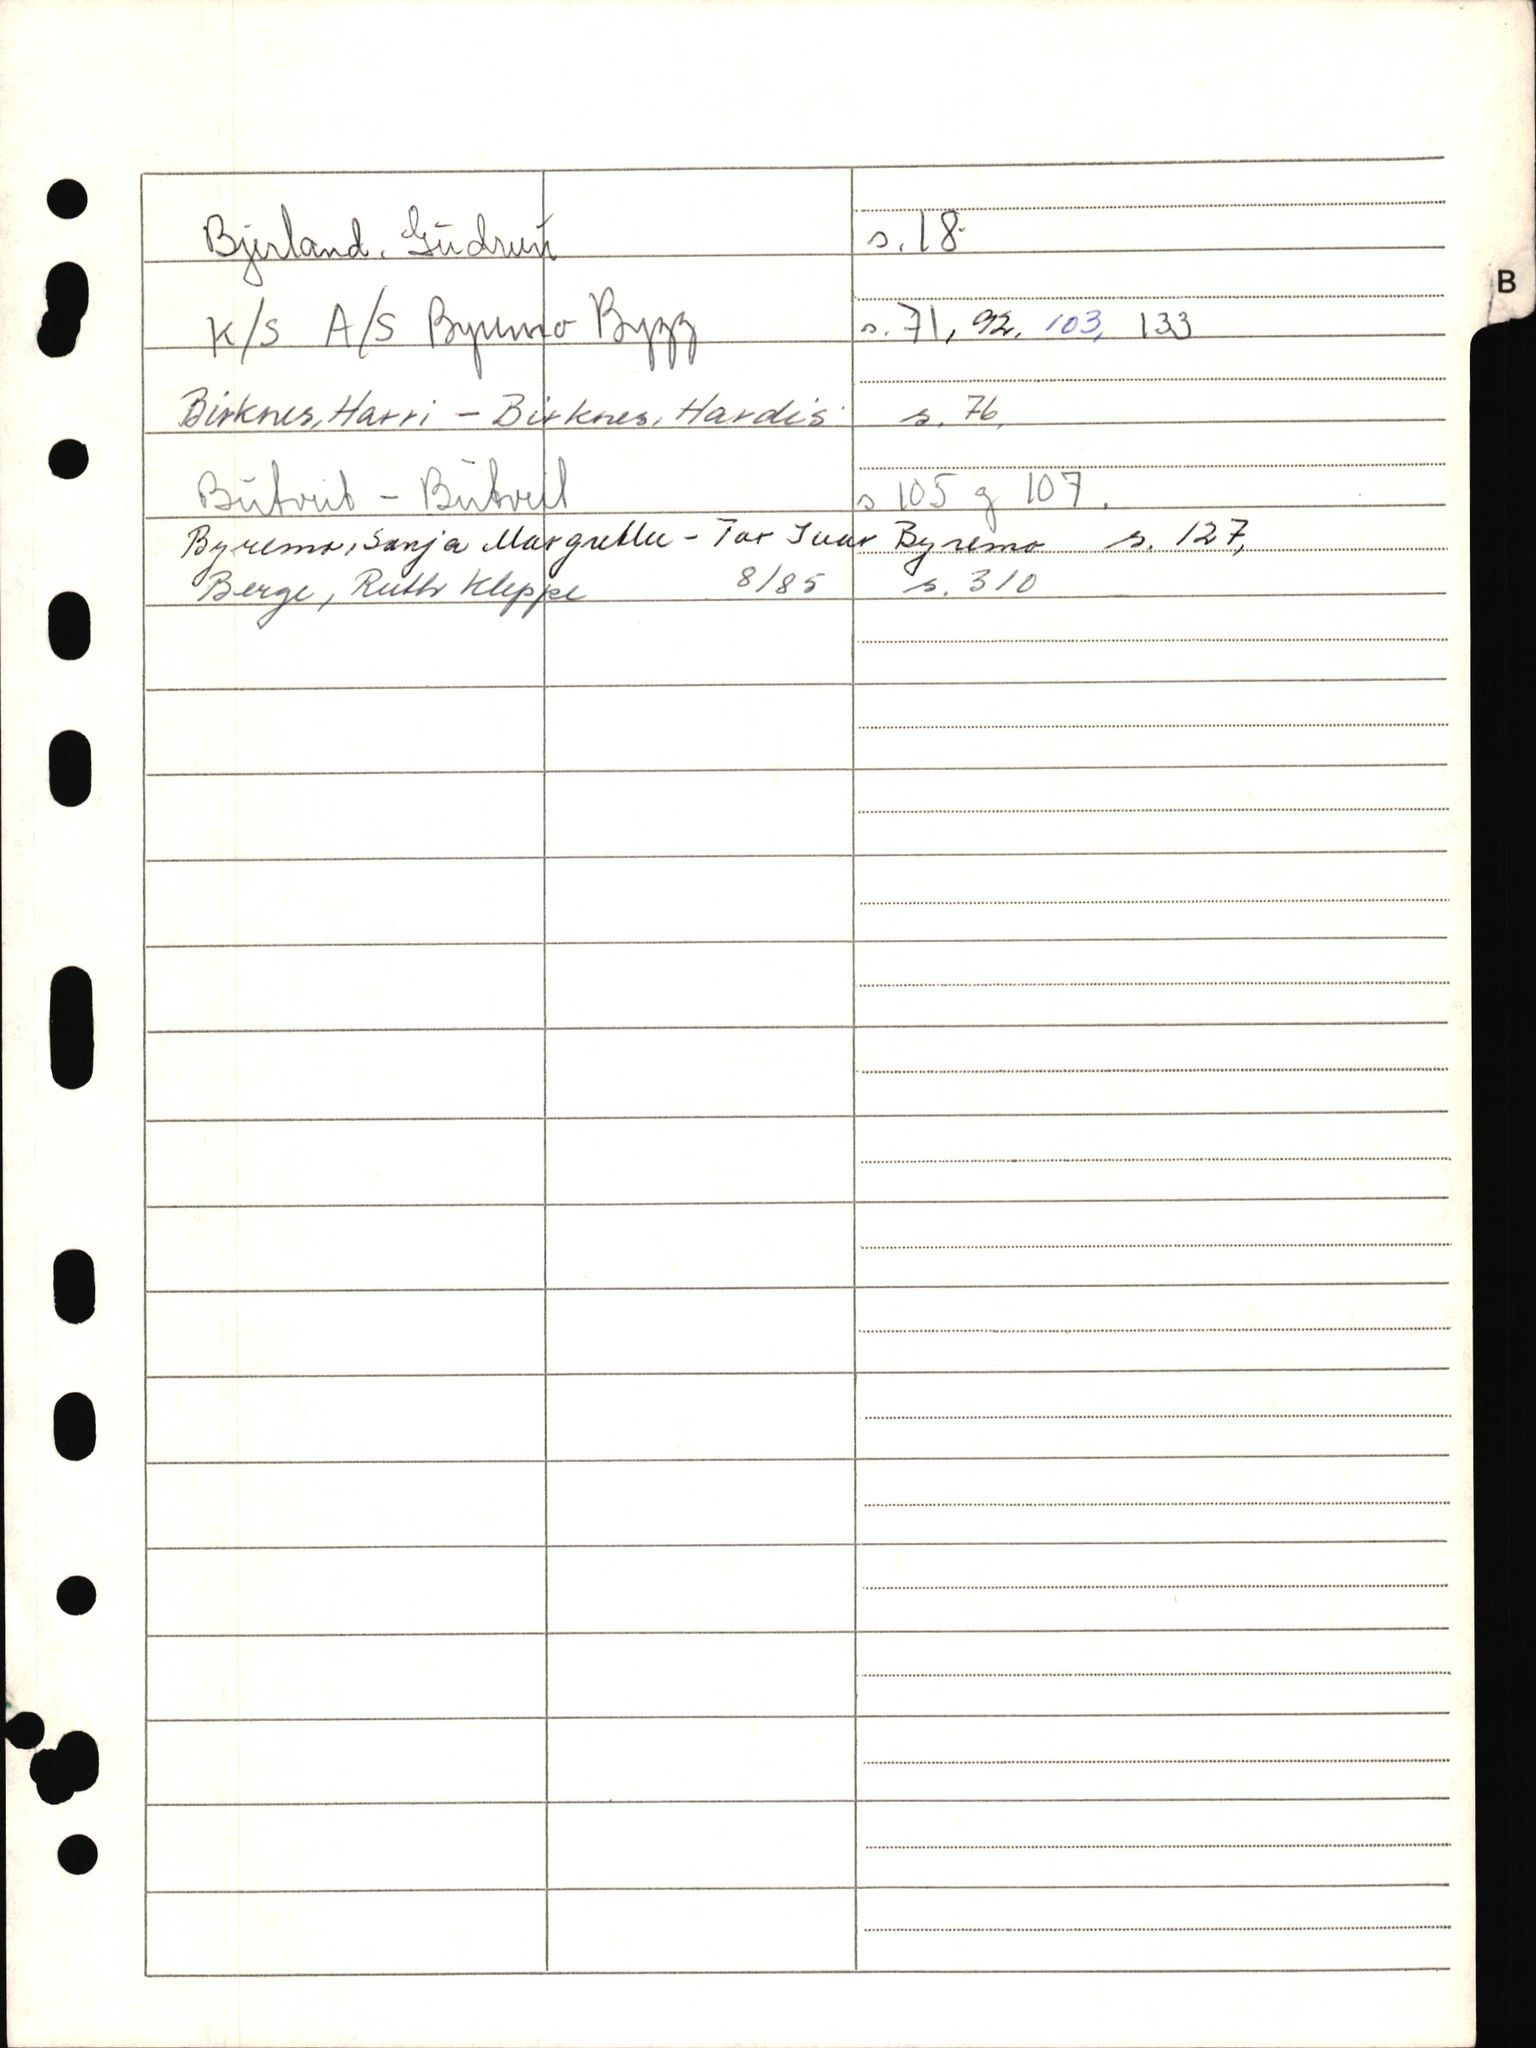 Bjerland, Gudrun s. 18
B
K/S A/S Byremo Bygg s. 71, 92, 103, 133
Birknes, Harri - Birknes, Hardis s. 76,
Butveit - Butveit s 105 g 107.
Byremo, Sonja Margrethe - Tor Ivar Byremo s. 127,
Berge, Ruth Kleppe 8/85 s. 310